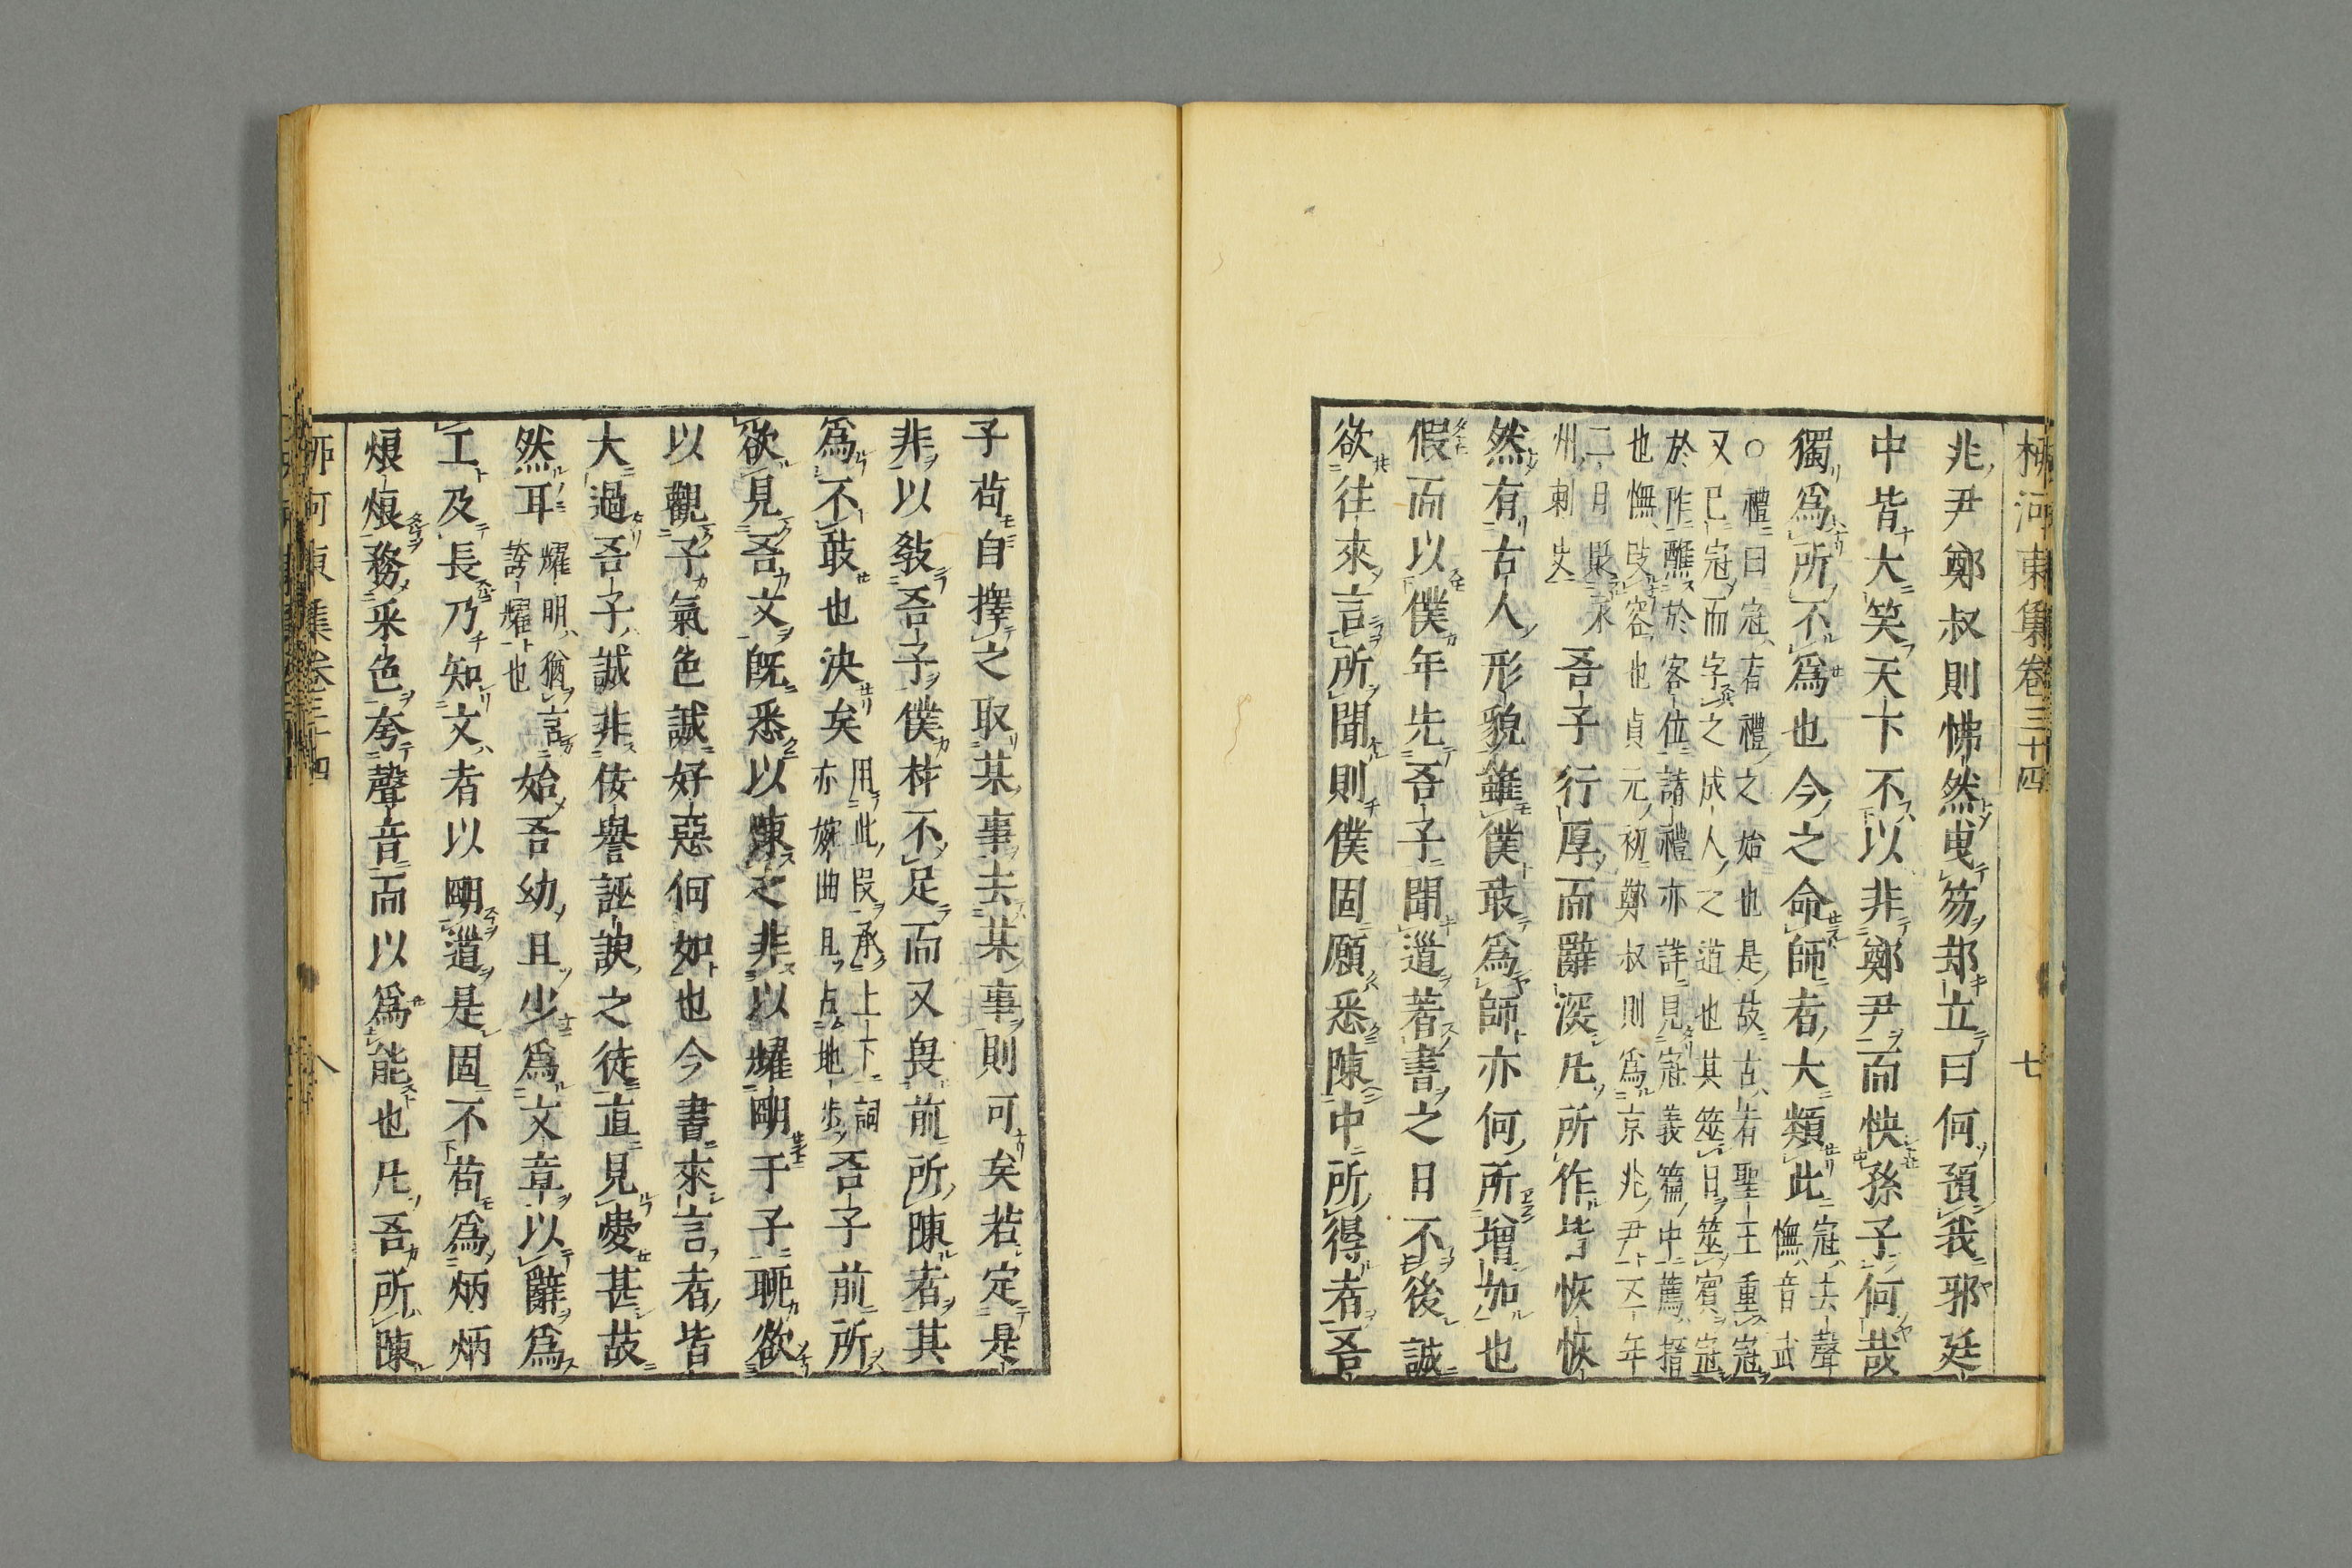 柳河東集卷三十四 七
兆尹鄭叔則怫然曳笏却立曰何預我邪廷
中皆大笑天下不以非鄭尹而快孫子何哉
獨爲所不爲也今之命師者大類此冠去聲
憮音武
○禮曰冠者禮之始也是故古者聖王重冠
又已冠而字之成人之道也其筮日筮賓冠
於阼醮於客位請禮亦詳見冠義篇中薦搢
也憮改容也貞元初鄭叔則爲京兆尹五年
二月貶永
州刺史
吾子行厚而辭深凡所作皆恢恢
然有古人形貌雖僕敢爲師亦何所增加也
假而以僕年先吾子聞道著書之日不後誠
欲往來言所聞則僕固願悉陳中所得者吾
子苟自擇之取某事去某事則可矣若定是
非以教吾子僕材不足而又畏前所陳者其
爲不敢也決矣用此段承上下詞
亦婉曲且占地步
吾子前所
欲見吾文既悉以陳之非以耀明于子聊欲
以觀子氣色誠好惡何如也今書來言者皆
大過吾子誠非佞譽誣諛之徒直見愛甚故
然耳耀明猶言
誇耀也
始吾幼且少爲文章以辭爲
工及長乃知文者以明道是固不苟爲炳炳
烺烺務采色夸聲音而以爲能也凡吾所陳
柳河東集卷三十四 八